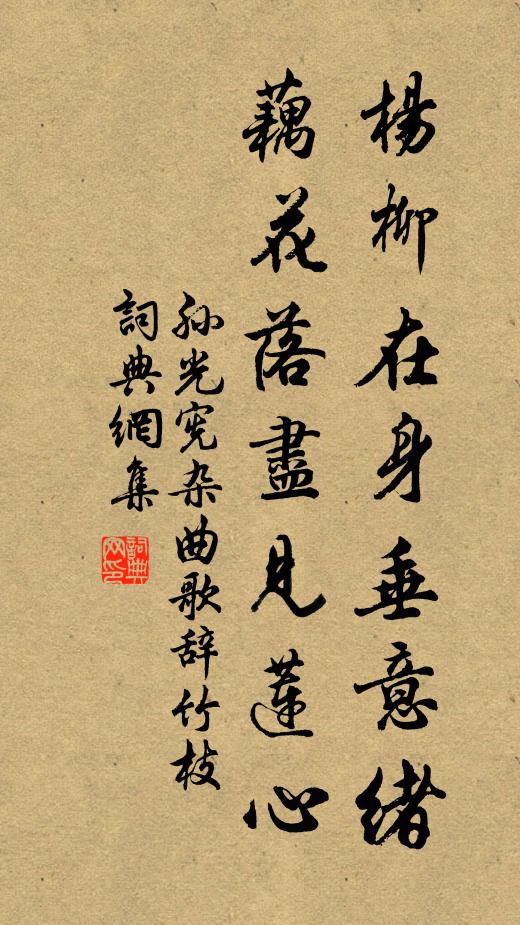 楊柳在身垂意緒
藕花落盡見蓮心
孙光宪杂曲歌辞竹枝
詞典網集
詞典网印